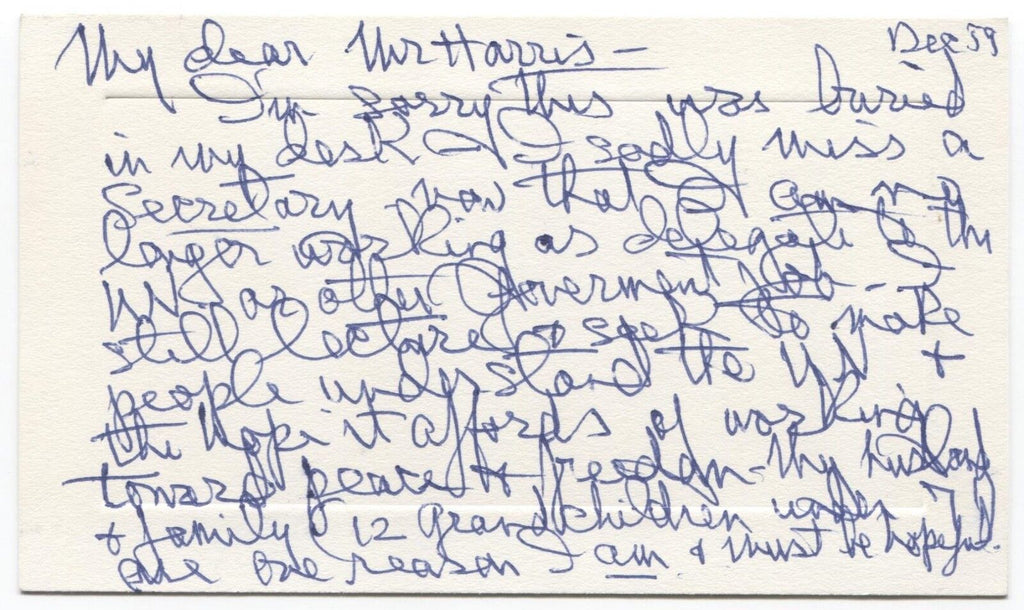 Dec 59
My dear Mr Harris –
I'm sorry this was buried
in my desk I sadly miss a
Secretary now that I am no
longer working as delegate to the
UN or other Government job – I
still lecture & seek to make
people understand the UN +
the hope it affords of working
toward peace + freedom – My husband
+ family 12 grandchildren under 7
are one reason I am & must be hopeful.